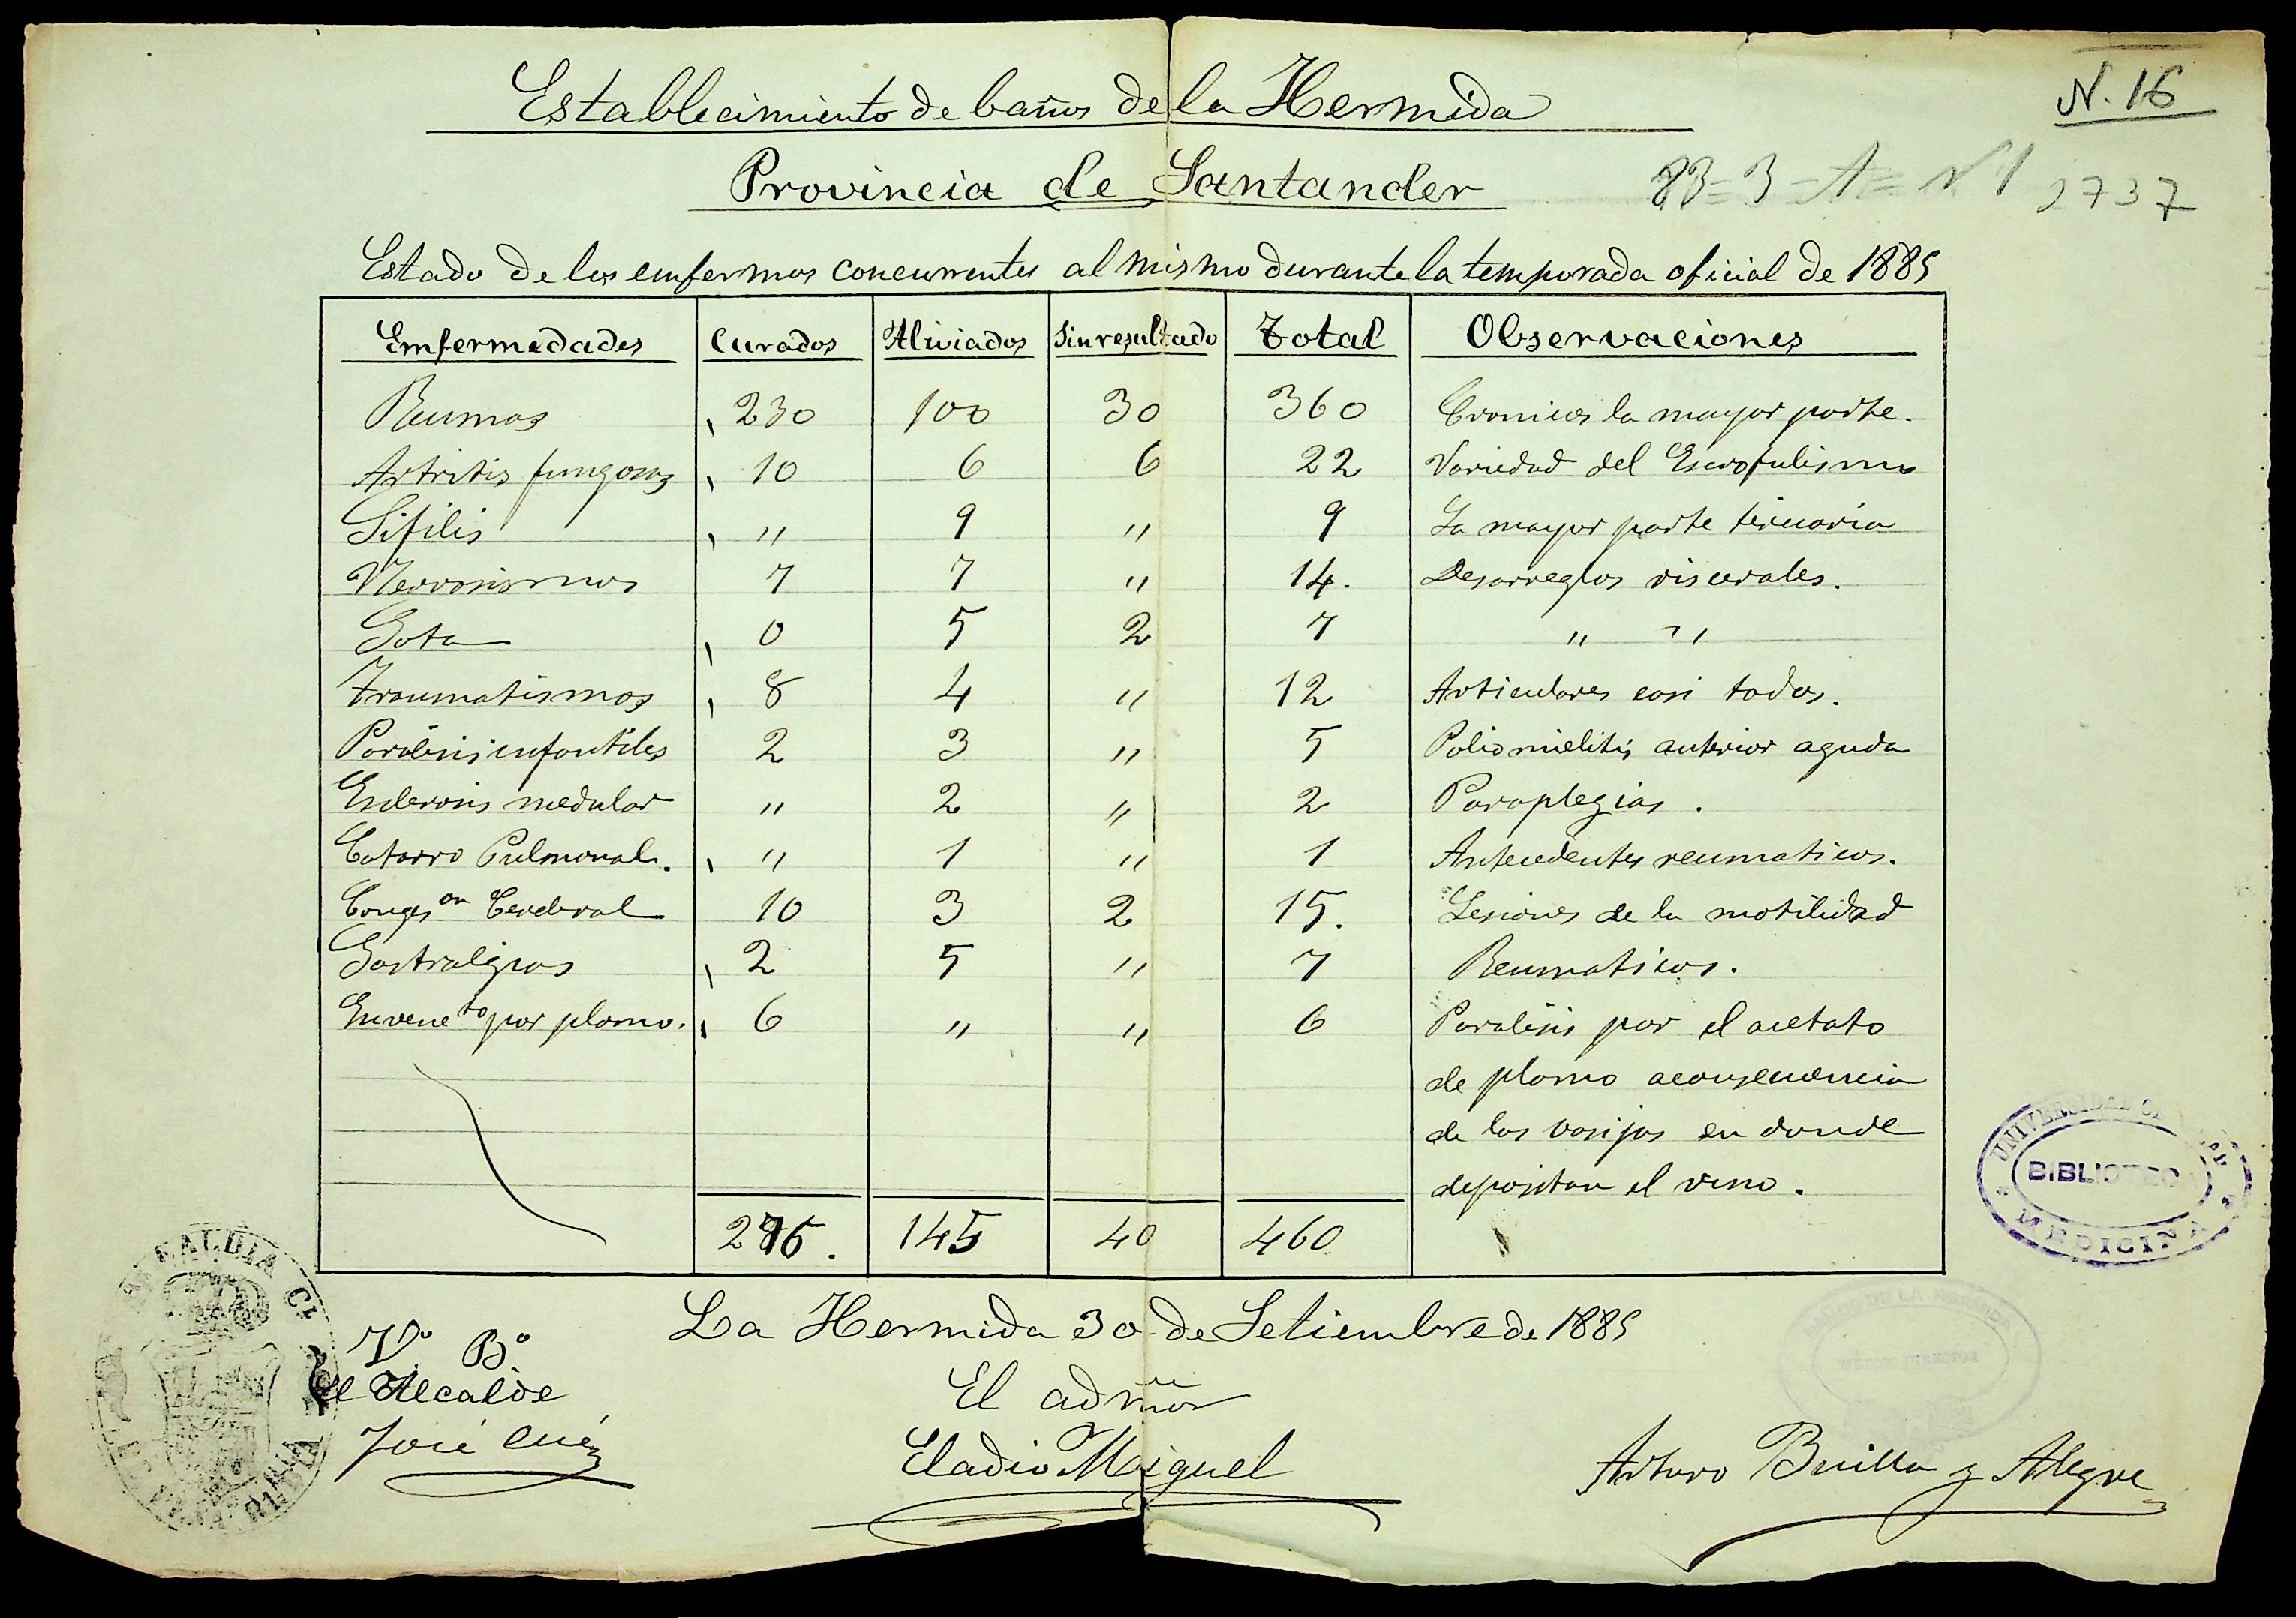 N. 16
Establecimiento de baños de la Hermida
Provincia de Santander
83=3=A=N 1 2737
Estado de los enfermos concurrentes al mismo durante la temporada oficial de 1885
Enfermedades Curados Aliviados Sin resultado Total Observaciones
Reumas 230 100 30 360 Cronicos la mayor parte.
Artritis fungosas 10 6 6 22 Variedad del Escrofulismo
Sifilis " 9 " 9 La mayor parte terciaria
Nervosismos 7 7 " 14. Desarreglos viscerales.
Gota 0 5 2 7 " "
Traumatismos 8 4 " 12 Articulares casi todos.
Paralisis infantiles 2 3 " 5 Poliomielitis anterior aguda
Esclerosis medular " 2 " 2 Paraplegias.
Catarro Pulmonal. " 1 " 1 Antecedentes reumaticos.
Congeson Cerebral 10 3 2 15. Lesiones de la motilidad
Gastralgias 2 5 " 7 Reumaticos.
Enveneto por plomo. 6 " " 6 Paralisis por el acetato
de plomo a consecuencia
de las vasijas en donde
depositan el vino.
275. 145 40 460
La Hermida 30 de Setiembre de 1885
Vº Bº
El Alcalde
José
El admor
Eladio Miguel
Arturo Buylla y Alegre
ALCALDIA
UNIVERSIDAD
BIBLIOTEC
MEDICINA
BAÑOS DE LA HERMIDA
MEDICO DIRECTOR